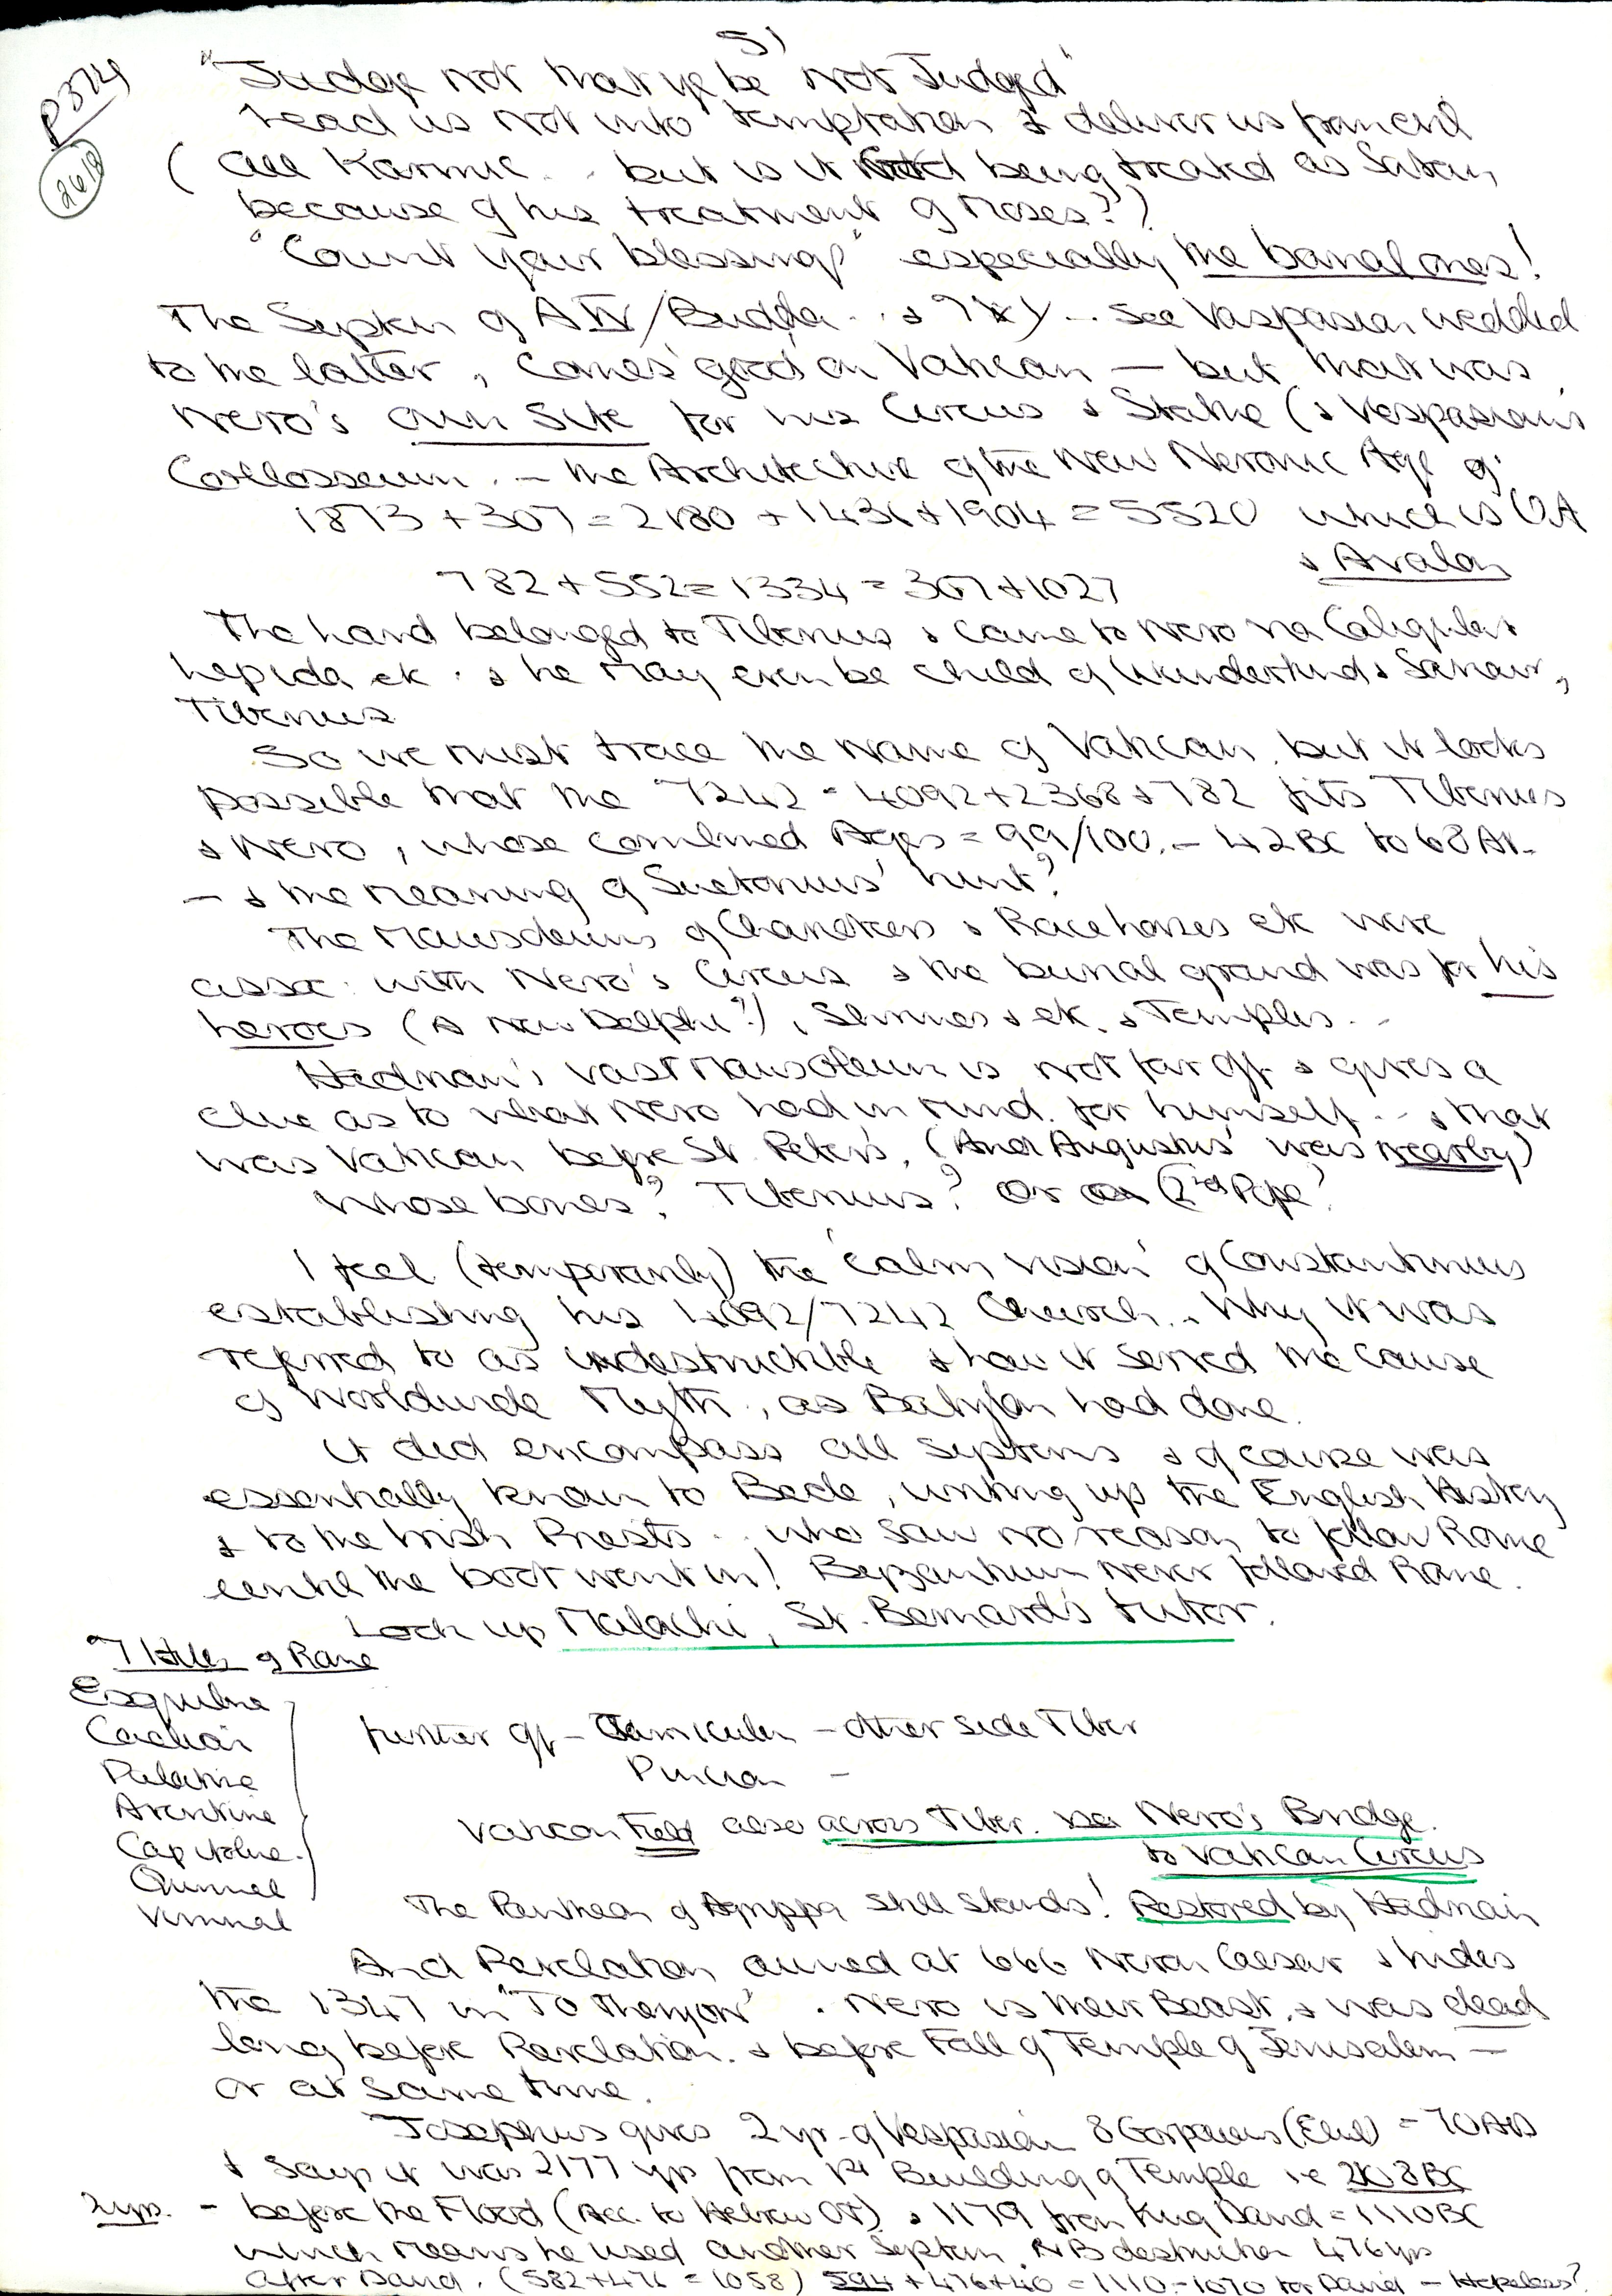 5)
P374
2618
"Judge not that ye be not Judged"
Lead us not into temptation & deliver us from evil
( All Karmic . . but is it being treated as Satan,
because of his treatment of Moses?)
"Count your blessings" especially the banal ones!
The System of A IV / Budda . . & ? . . See Vaspasian wedded
to the latter, Comes good on Vatican — but that was
Nero's own site for his Circus & Statue (& Vespasian's
Collosseum. — the Architecture of the New Neronic Age of
1873 + 307 = 2180 + 1436 + 1904 = 5520 which is
& Avalon
782 + 552 = 1334 = 307 + 1027
The hand belonged to Tiberius & came to Nero via Caligula &
Lepida etc . & he may even be child of &
Tiberius
So we must trace the name of Vatican, but it looks
possible that the 7242 = 4092 + 2368 + 782 fits Tiberius
& Nero, whose combined Ages = 99/100. — 42 BC to 68 AD
— & the meaning of Suetonius' hint?
The Mausoleums of Charioteers & Racehorses etc were
assoc. with Nero's Circus & the burial ground was for his
heroes (A New Delphi?), Shrines & etc. & Temples . .
Hadrian's vast Mausoleum is not far off & gives a
clue as to what Nero had in mind for himself . . & that
was Vatican before St Peter's. (And Augustus' was nearby)
Whose bones? Tiberius? Or (2nd Pope?
I feel (temporarily) the 'calm vision' of Constantinus
establishing his 4092/7242 Church . . Why it was
referred to as indestructible & how it served the cause
of Worldwide Myth, as Babylon had done.
It did encompass all systems & of course was
essentially known to Bede, writing up the English History
& to the Irish Priests . . who saw no reason to follow Rome
until the boot went in! Byzantium never followed Rome.
Look up Malachi, St. Bernard's tutor.
7 Hills of Rome
Esquiline
Caelian
Palatine
Aventine
Capitoline
Quirinal
Viminal
further off — Janiculum — other side Tiber
Pincian —
Vatican Field also across Tiber. via Nero's Bridge
to Vatican Circus
The Pantheon of Agrippa still stands! Restored by Hadrian
And Revelation aimed at 666 Neron Caesar & hides
the 1347 in "To Therion" . Nero is their Beast, & was dead
long before Revelation. & before Fall of Temple of Jerusalem —
or at same time.
Josephus gives 2 yr of Vespasian 8 Gorpaeus (Elul) = 70 AD
& says it was 2177 yrs from 1st Building of Temple ie 2108 BC
2 yrs. — before the Flood (Acc. to Hebrew OT) & 1179 from King David = 1110 BC
which means he used another System. NB destruction 476 yrs
after David. (582 + 476 = 1058) 594 + 476 + 40 = 1110 - 1070 for David —